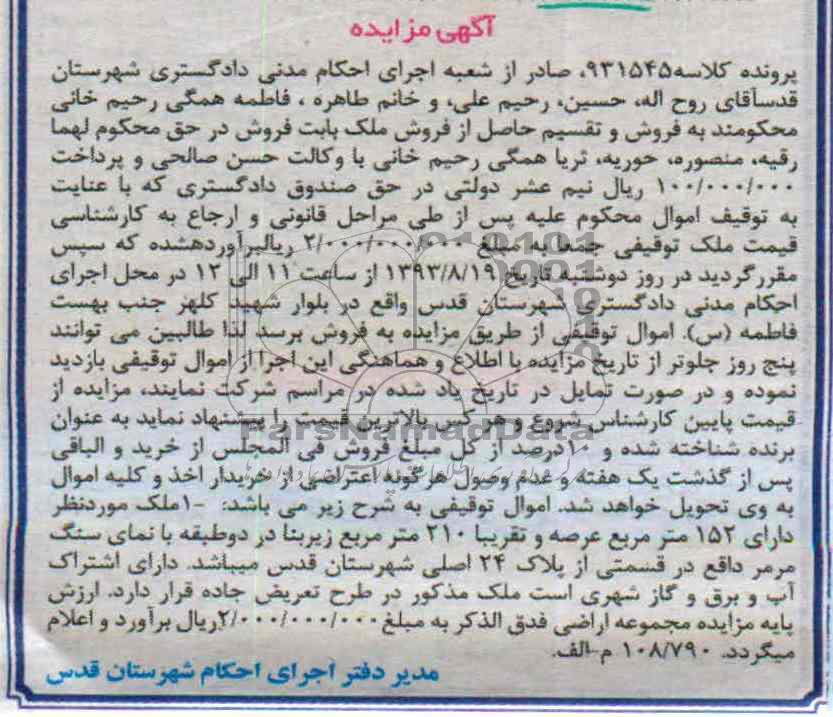 آگهی مزایده
پرونده کلاسه۹۳۱۵۴۵، صادر از شعبه اجرای احکام مدنی دادگستری شهرستان
قدسآقای روح اله، حسین، رحیم علی، و خانم طاهره ، فاطمه همگی رحیم خانی
محکومند به فروش و تقسیم حاصل از فروش ملک بابت فروش در حق محکوم لهما
رقیه، منصوره، حوریه، ثریا همگی رحیم خانی با وکالت حسن صالحی و پرداخت
۱۰۰/۰۰۰/۰۰۰ ریال نیم عشر دولتی در حق صندوق دادگستری که با عنایت
به توقیف اموال محکوم علیه پس از طی مراحل قانونی و ارجاع به کارشناسی
قیمت ملک توقیفی جمعا به مبلغ ۲/۰۰۰/۰۰۰/۰۰۰ ریالبرآوردهشده که سپس
مقررگردید در روز دوشنبه تاریخ ۱۳۹۳/۸/۱۹ از ساعت ۱۱ الی ۱۲ در محل اجرای
احکام مدنی دادگستری شهرستان قدس واقع در بلوار شهید کلهر جنب بهست
فاطمه (س). اموال توقیفی از طریق مزایده به فروش برسد لذا طالبین می توانند
پنج روز جلوتر از تاریخ مزایده با اطلاع و هماهنگی این اجرا از اموال توقیفی بازدید
نموده و در صورت تمایل در تاریخ یاد شده در مراسم شرکت نمایند، مزایده از
قیمت پایین کارشناس شروع و هر کس بالاترین قیمت را پیشنهاد نماید به عنوان
برنده شناخته شده و ۱۰درصد از کل مبلغ فروش فی المجلس از خرید و الباقی
پس از گذشت یک هفته و عدم وصول هرگونه اعتراضی از خریدار اخذ و کلیه اموال
به وی تحویل خواهد شد. اموال توقیفی به شرح زیر می باشد: -۱ملک موردنظر
دارای ۱۵۲ متر مربع عرصه و تقریبا ۲۱۰ متر مربع زیربنا در دوطبقه با نمای سنگ
مرمر داقع در قسمتی از پلاک ۲۴ اصلی شهرستان قدس میباشد. دارای اشتراک
آب و برق و گاز شهری است ملک مذکور در طرح تعریض جاده قرار دارد. ارزش
پایه مزایده مجموعه اراضی فدق الذکر به مبلغ ۲/۰۰۰/۰۰۰/۰۰۰ریال برآورد و اعلام
میگردد. ۱۰۸/۷۹۰ م-الف.
مدیر دفتر اجرای احکام شهرستان قدس
ParsNamadData